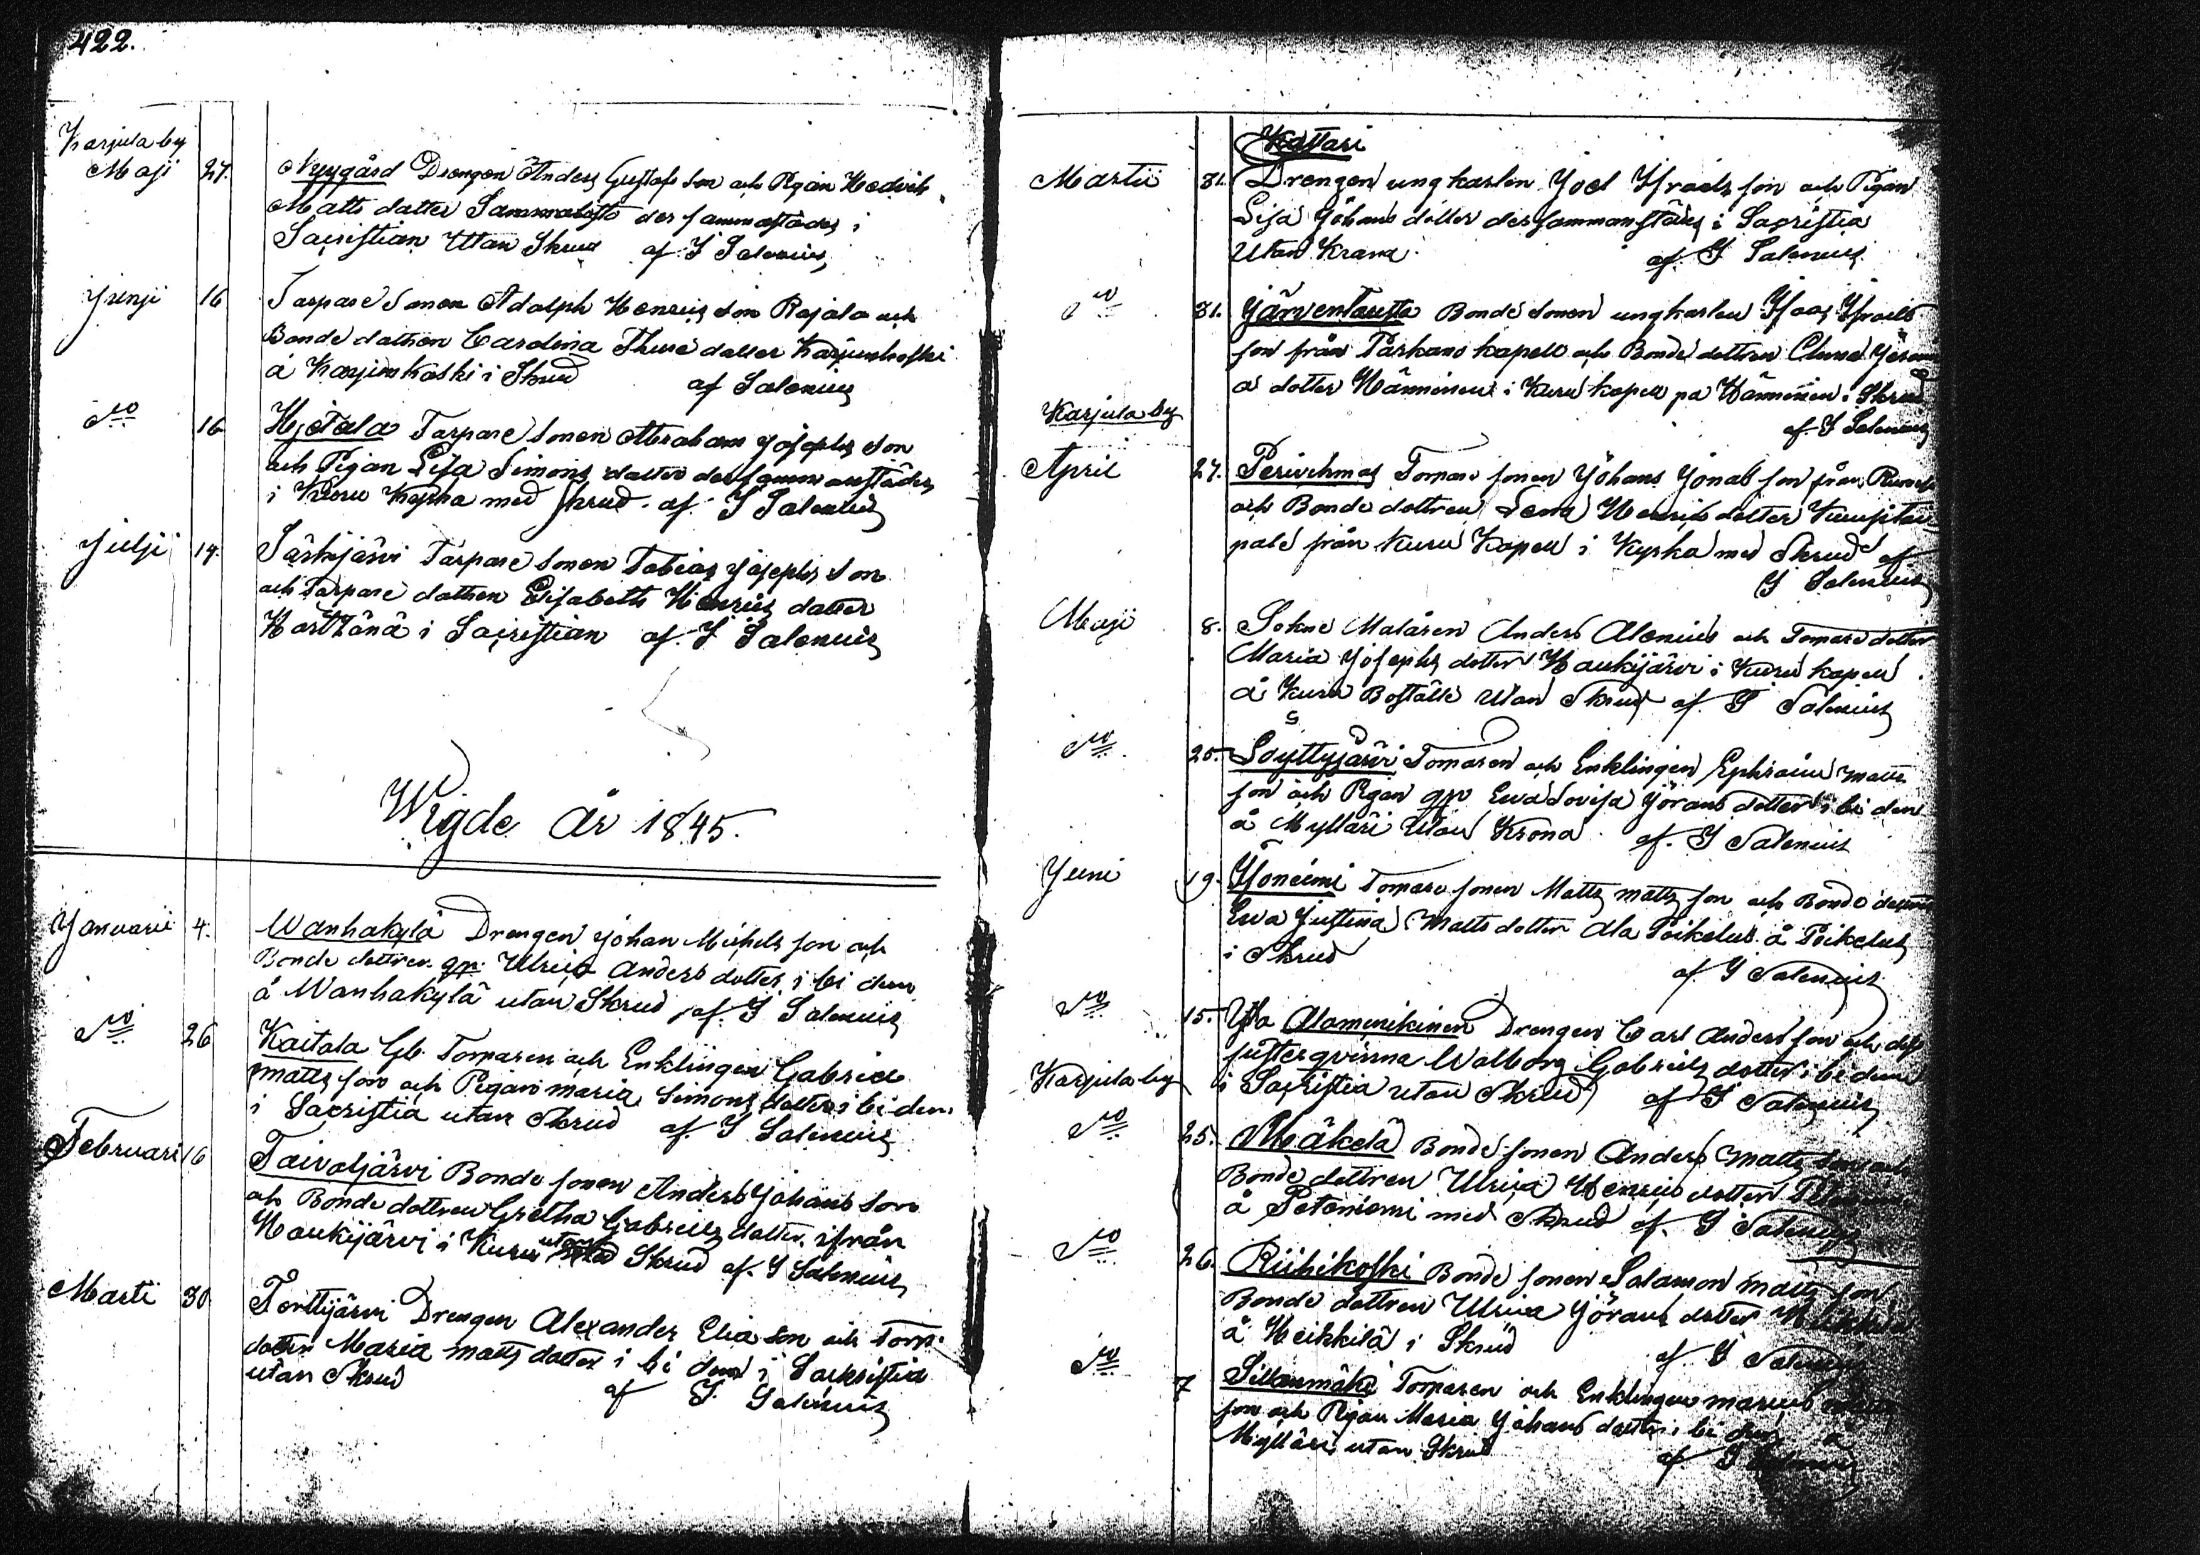 422.
Karjula by
Maji 27. Nyygård Drengen Anders Gustafs son och Pigan Hedvik
Matts dotter dersammastädes i
Sacristian Utan Skrud af I Salenius
Junji 16 Tarpare Sonen Adolph Henrics son Rajala och
Bonde dottren Carolina Thure dotter Karjunkoski
å Karjunkoski i Skrud af Salenius
do 16 Hjetala Tarpare Sonen Abraham Josephs son
och Pigan Lisa Simons dotter dersammastädes
i Kuru Kyrka med Skrud. af I Salenius
Julji 14. Särkijärvi Tarpare Sonen Tobias Josephs son
och Tarpare dottren Elisabeth Henrics dotter
i Sacristian af. I Salenius
Wigde År 1845.
Januarii 4. Wanhakylä Drengen Johan Michels son och
Bonde dottren. gr. Ulrica Anders dotter i bi dem
å Wanhakylä utan Skrud af. I Salenius
do 26 Kaitala Gb. Torparen och Enklingen Gabriel
Matts son och Pigan Maria Simons dotter i bi dem
i Sacristia utan Skrud af. I Salenius
Februari 16 Taivaljärvi Bonde sonen Anders Johans son
och Bonde dottren Gretha Gabriels dotter ifrån
Haukijärvi i Kuru utan Skrud af. I Salenius
Marti 30. Torttijärvi Drengen Alexander Elia son och Torp.
dotter Maria Matts dotter i bi dem i Sackristia
utan Skrud af I. Salenius
Kattari
Martii 31. Drengen ungkarlen Joel Israels son och Pigan
Lisa Johans dotter dersammanstädes i Sacristia
Utan Krana. af. I Salenius
do 31. Järventausta Bonde sonen ungkarlen Isaac Israels
son från Parkano kapell och Bonde dottren
a dotter Hänninen i Kuru kapell pa Hänninen i Skrud
af. I Salenius
Karjula by
April 27. Perivehmas Torpare sonen Johans Jonas son från
och Bonde dottren Lena Henrics dotter
pale från Kuru Kapell i Kyrka med Skrud af
I Salenius
Maji 8. Sokne Målaren Anders Alenius och Torpare dotter
Maria Josephs dotter Haukijärvi i Kuru kapell
å Kuru Boställe Utan Skrud af. I Salenius
do 25. Löyttyjärvi Torparen och Enklingen Ephraim Matts
son och Pigan gr Ewa Lovisa Jörans dotter i bi dem
å Mylläri Utan Krona. af. I Salenius
Juni 19. Itoniemi Torpare sonen Matts Matts son och Bonde dottren
Ewa Justina Matts dotter Ala Poikelus å Poikelus
i Skrud af I Salenius
do 15. Alamenikinen Drengen Carl Anders son och
qvinna Walborg Gabriels dotter i bi dem
Karjula by i Sacristia utan Skrud af I Salenius
do 25. Mäkelä Bonde sonen Anders Matts son och
Bonde dottren Ulrica Henrics dotter
å Petoniemi med Skrud af. I Salenius
do 26. Riihikoski Bonde sonen Salamon Matts son
Bonde dottren Ulrica Jörans dotter Heikkilä
å Heikkilä i Skrud af I Salenius
do 7 Sillanmäki Torparen och Enklingen
son och Pigan Maria Johans dotter i bi dem å
Mylläri utan Skrud af I Salenius